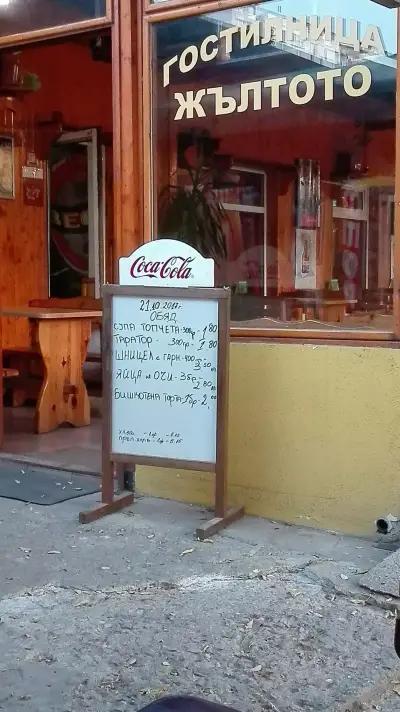 ГОСТИЛНИЦА
ЖЪЛТОТО
Coca-Cola
21.10.2017г.
ОБЯД
СУПА ТОПЧЕТА-300гр-1 80
ТАРАТОР - 300гр - 1 80
ШНИЦЕЛ с ГАРН-400гр
3,50
ЯЙЦА на ОЧИ-3бр-
2 80
БИШКОТЕНА ТОРТА-1бр-2,00